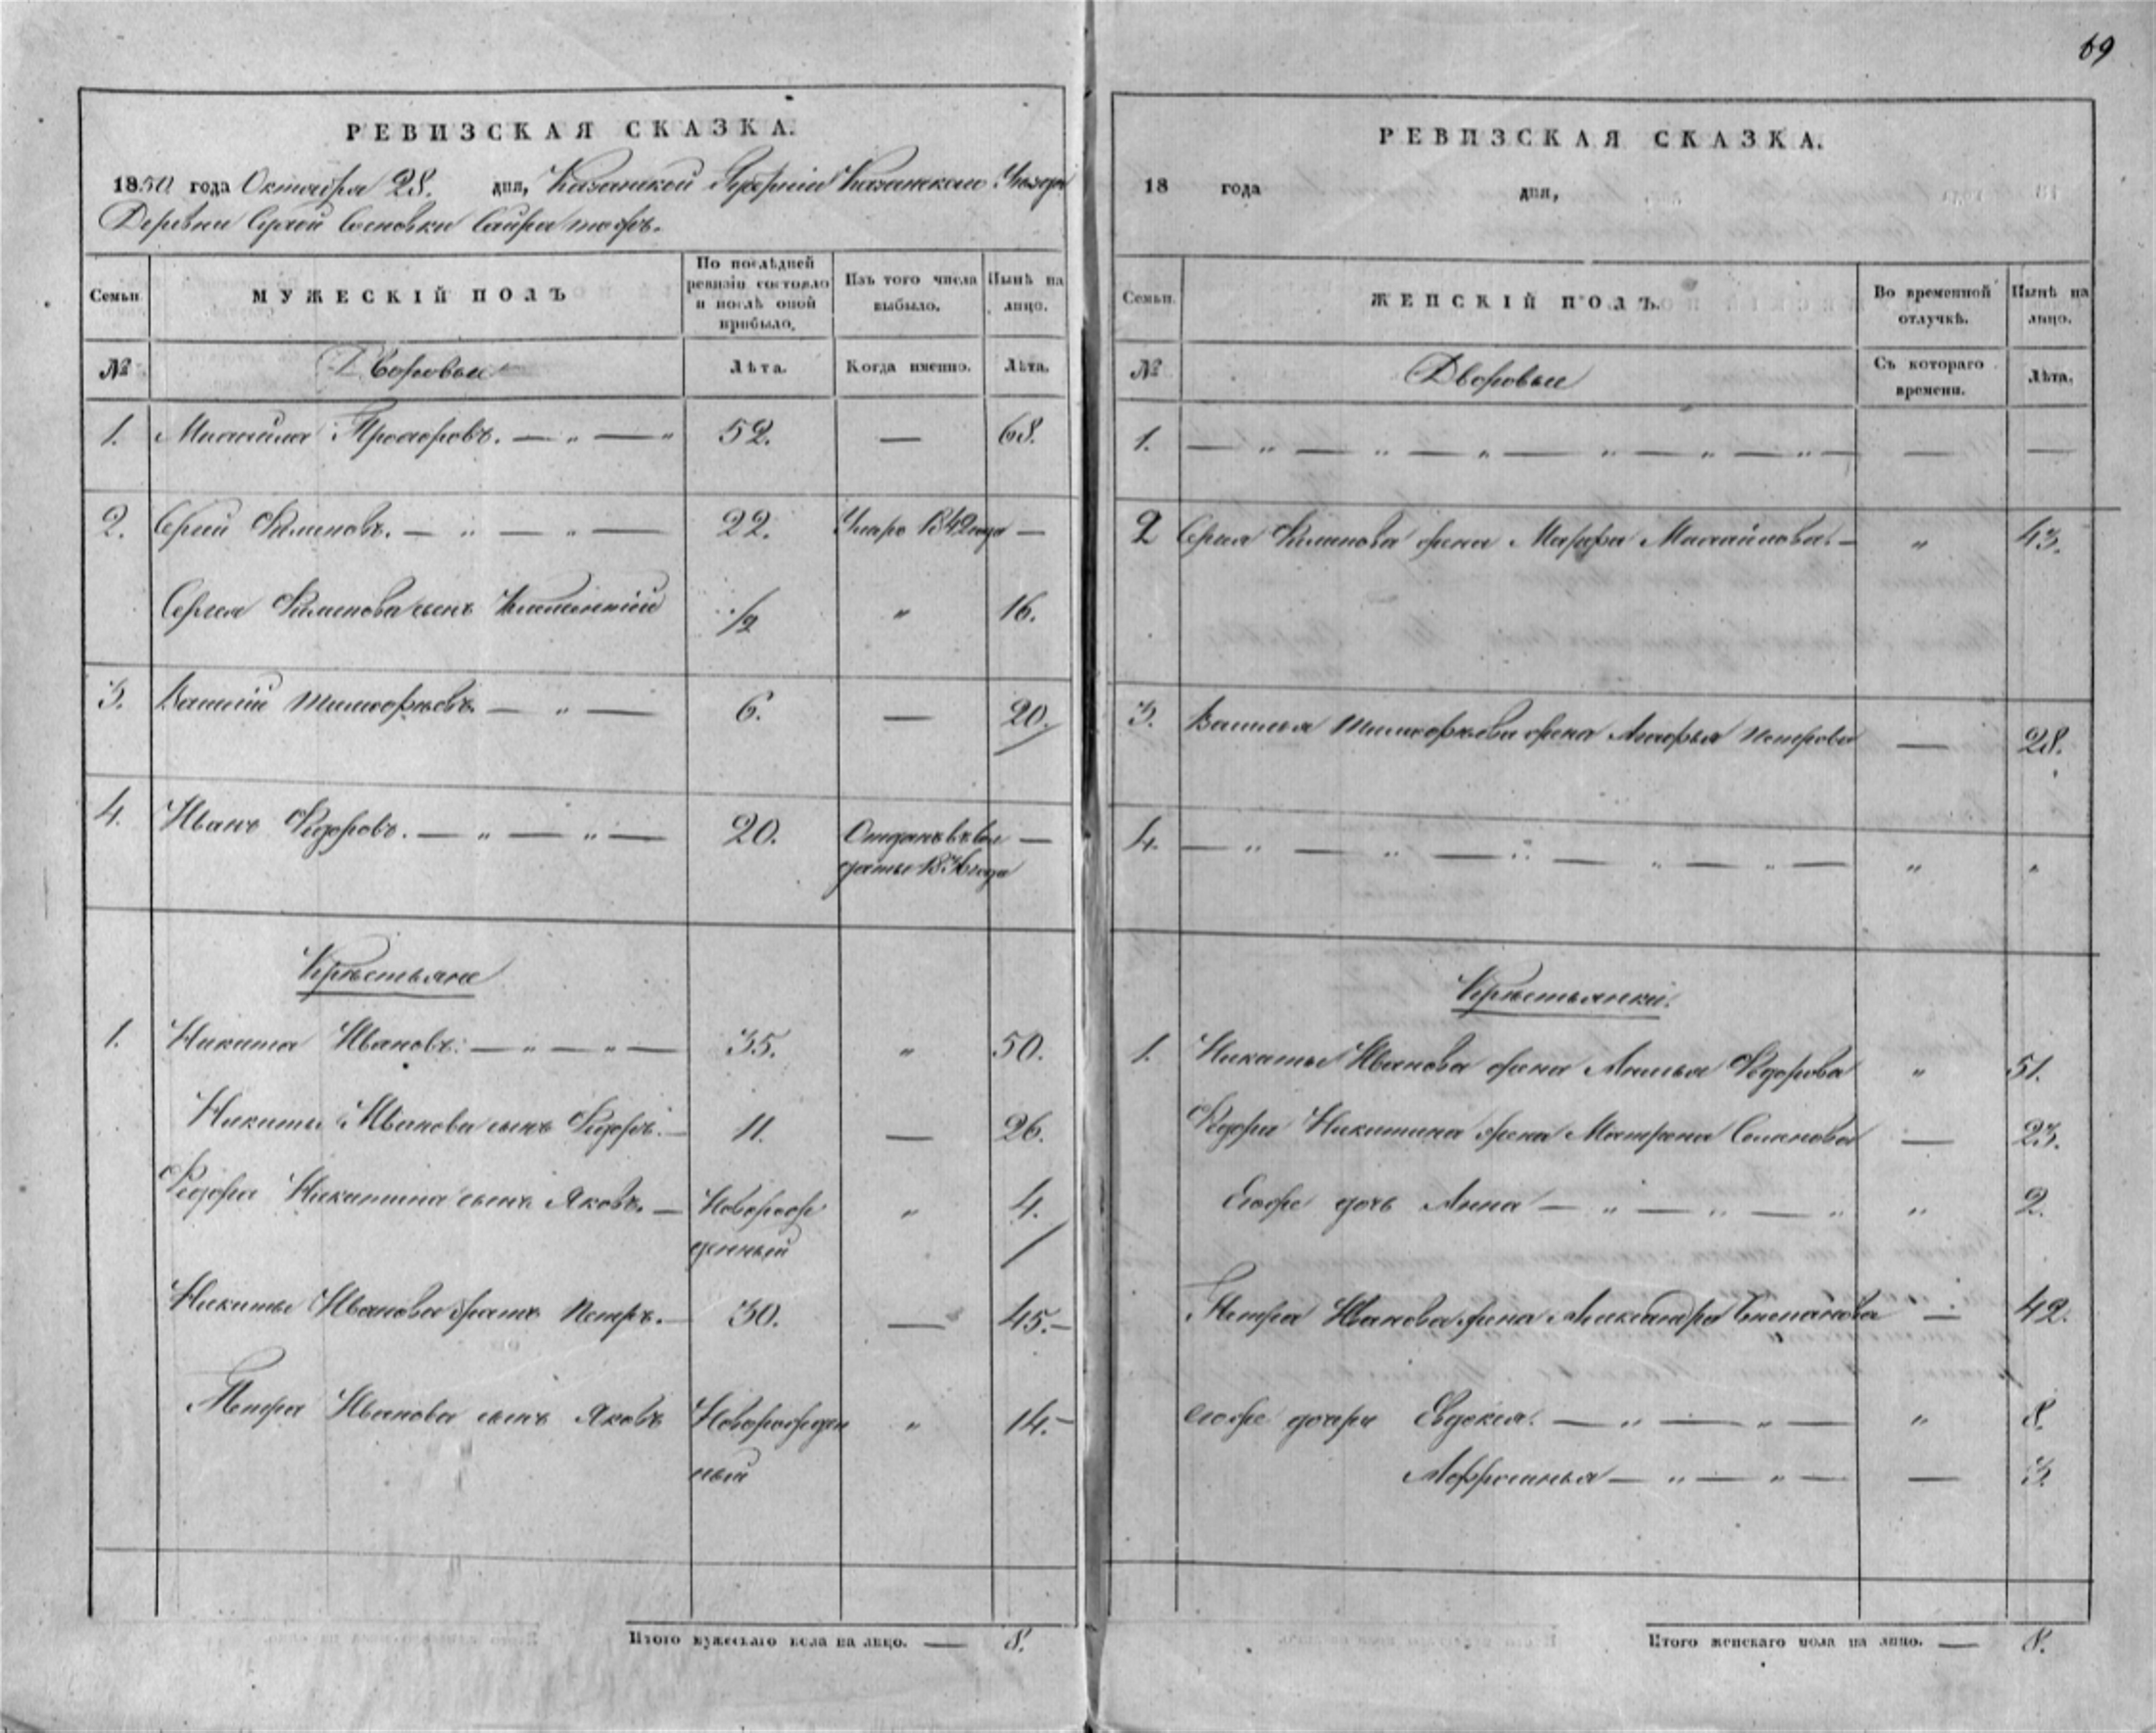 69
РЕВИЗСКАЯ СКАЗКА.
1850 года Октября 28. дня, Казанской Губернии Казанскаго Уѣзда
Деревни Сухой
МУЖЕСКІЙ ПОЛЪ
Семьи
По послѣдней ревизіи состояло и послѣ оной прибыло.
Изъ того числа выбыло.
Нынѣ на лицо.
№
Дворовые
Лѣта.
Когда именно.
Лѣта.
1. Михайла Прохоровъ. — " — " 52. — 68.
2. Сергѣй Филиповъ. — " — " — 22. Умеръ 1842 года —
Сергѣя Филипова сынъ 1/2 " 16.
3. Василій — " — 6. — 20.
4. Иванъ Федоровъ. — " — " — 20. Отданъ въ сол —
даты 1836 года
Крестьяне
1. Никита Ивановъ. — " — " — 35. " 50.
Никиты Иванова сынъ Федоръ. — 11. — 26.
Федора Никитина сынъ Яковъ. — Новорож " 4.
денный
Никиты Иванова братъ Петръ. — 30. — 45. —
Петра Иванова сынъ Яковъ Новорожден " 14. —
ный
Итого мужескаго пола на лицо. — 8.
РЕВИЗСКАЯ СКАЗКА.
18 года дня,
Семьи.
ЖЕНСКІЙ ПОЛЪ.
Во временной отлучкѣ.
Нынѣ на лицо.
№
Дворовые
Съ котораго времени.
Лѣта.
1. — " — " — " — " — " — " — — —
2 Сергѣя Филипова жена Марфа Михайлова. — " 43.
3. Василья жена Марфа Петрова — 28.
4. — " — " — " — " — " — " "
Крестьянки.
1. Никиты Иванова жена Федорова " 51.
Федора Никитина жена Матрена Семенова — 23.
Егоже дочь Анна — " — " — " " 2.
Петра Иванова жена Александра Степанова — 42.
Егоже дочери Евдокея. — " — " — " 8.
Афросинья — " — " — — 3.
Итого женскаго пола на лицо. — 8.